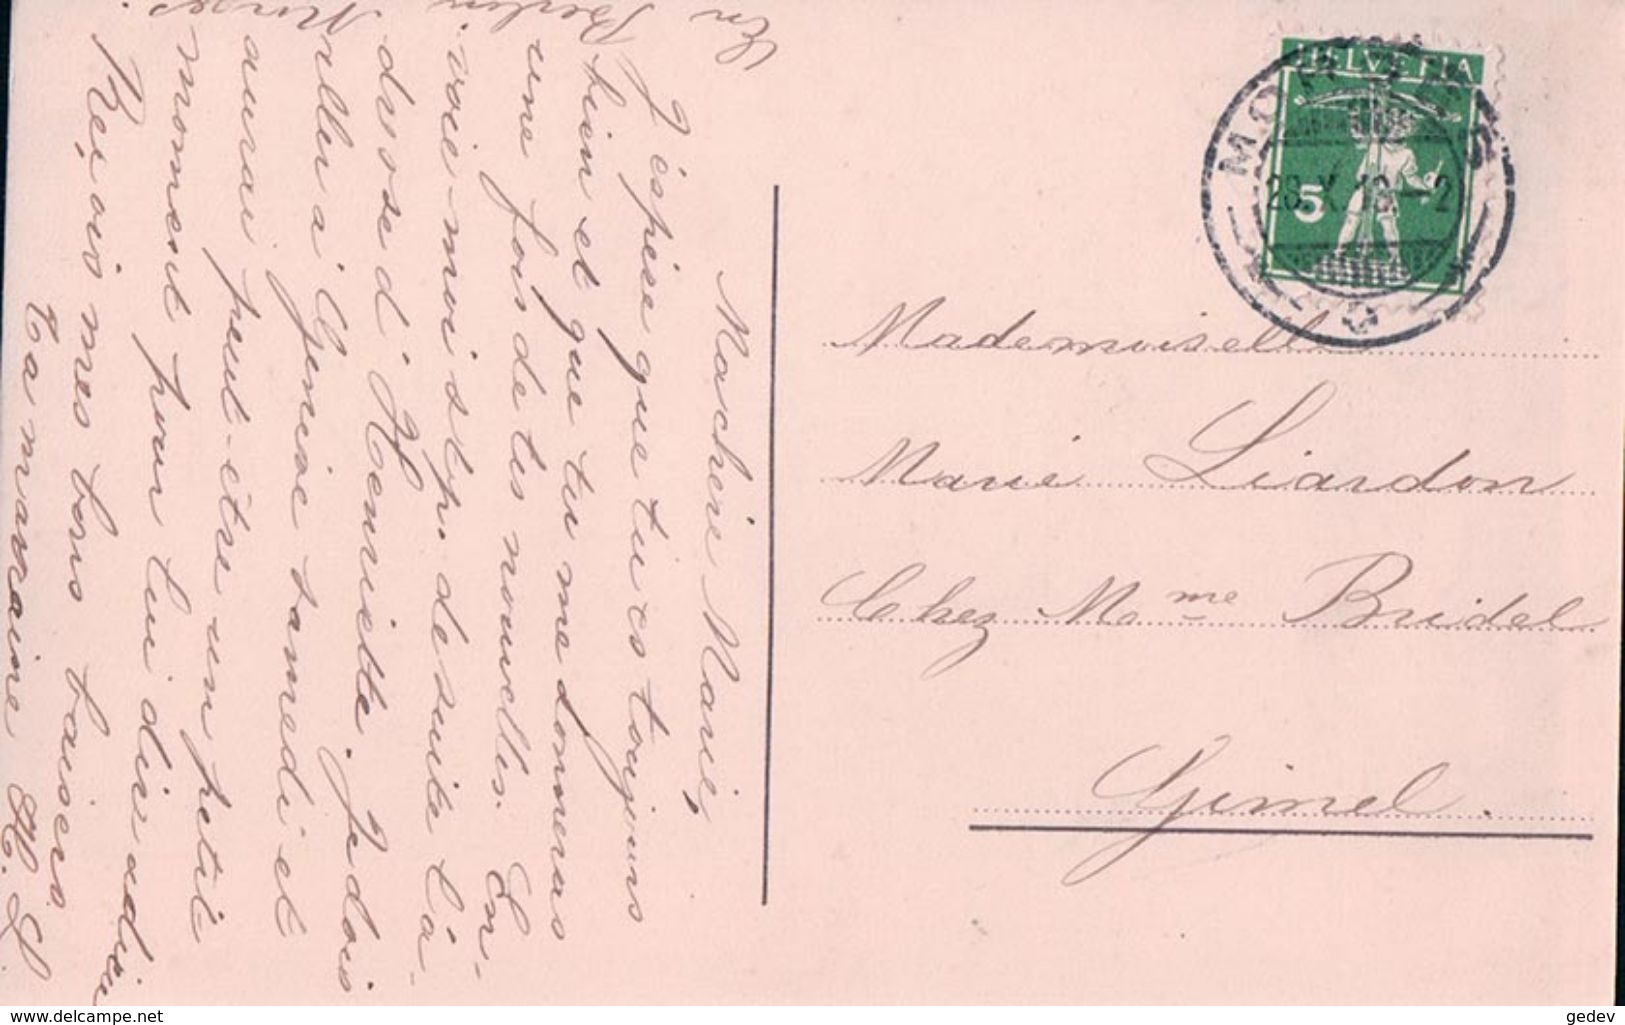 Ma chère Marie,
J'espère que tu es toujours
bien et que tu me donneras
une fois de tes nouvelles. En-
voie moi s.t.p. de suite l'a-
dresse d'Henriette. Je dois
aller à Genève samedi et
aurai peut-être un petit
moment pour lui dire adieu
Reçois mes bons baisers
Ta marraine H. L
En
Berlin
Morges.
HELVETIA
5
MORGES
28.X.13.-2
Mademoiselle
Marie Liardon
Chez Mme Bridel
Gimel.
www.delcampe.net
gedev